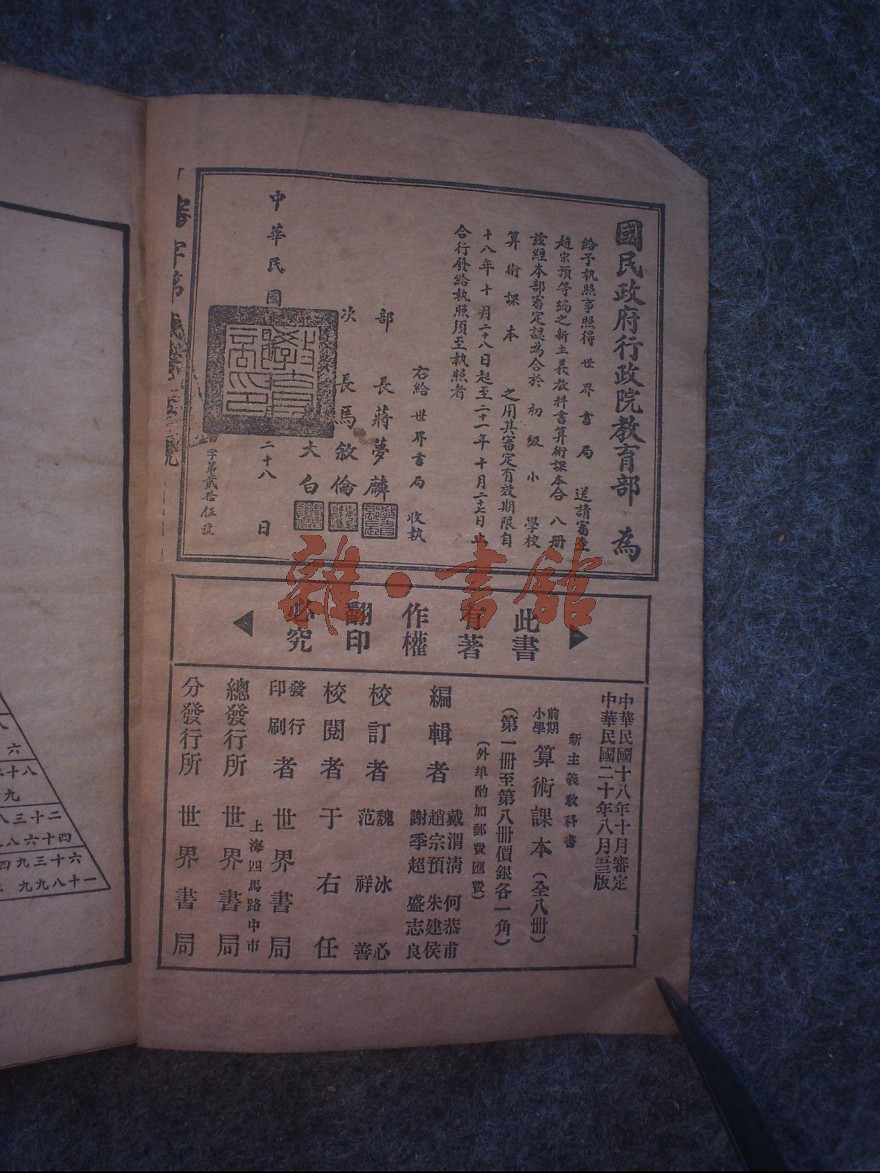 國民政府行政院教育部 為
給予執照事照得 世界書局 送請審
趙宗預等編之新主義教科書算術課本合 八冊
茲經本部審定認為合於 初級小 學校
算術課本 之用其審定有效期限自
十八年十月二十八日起至二十一年十月二十七日止
合行發給執照須至執照者
右給世界書局 收執
部 長蔣夢麟
次 長馬敘倫
大白
中華民國
二十八 日
字第貳拾伍號
此書
有著
作權
翻印
必究
中華民國十八年十月審定
中華民國二十年八月三版
新主義教科書
前期小學 算術課本 (全八冊)
(第一冊至第八冊價銀各一角)
(外埠酌加郵費匯費)
編輯者 戴渭清 何恭甫
趙宗預 朱建侯
謝季超 盛志良
校訂者 魏冰心
范祥善
校閱者 于右任
發行印刷者 世界書局
上海四馬路中市
總發行所 世界書局
分發行所 世界書局
雜·書館